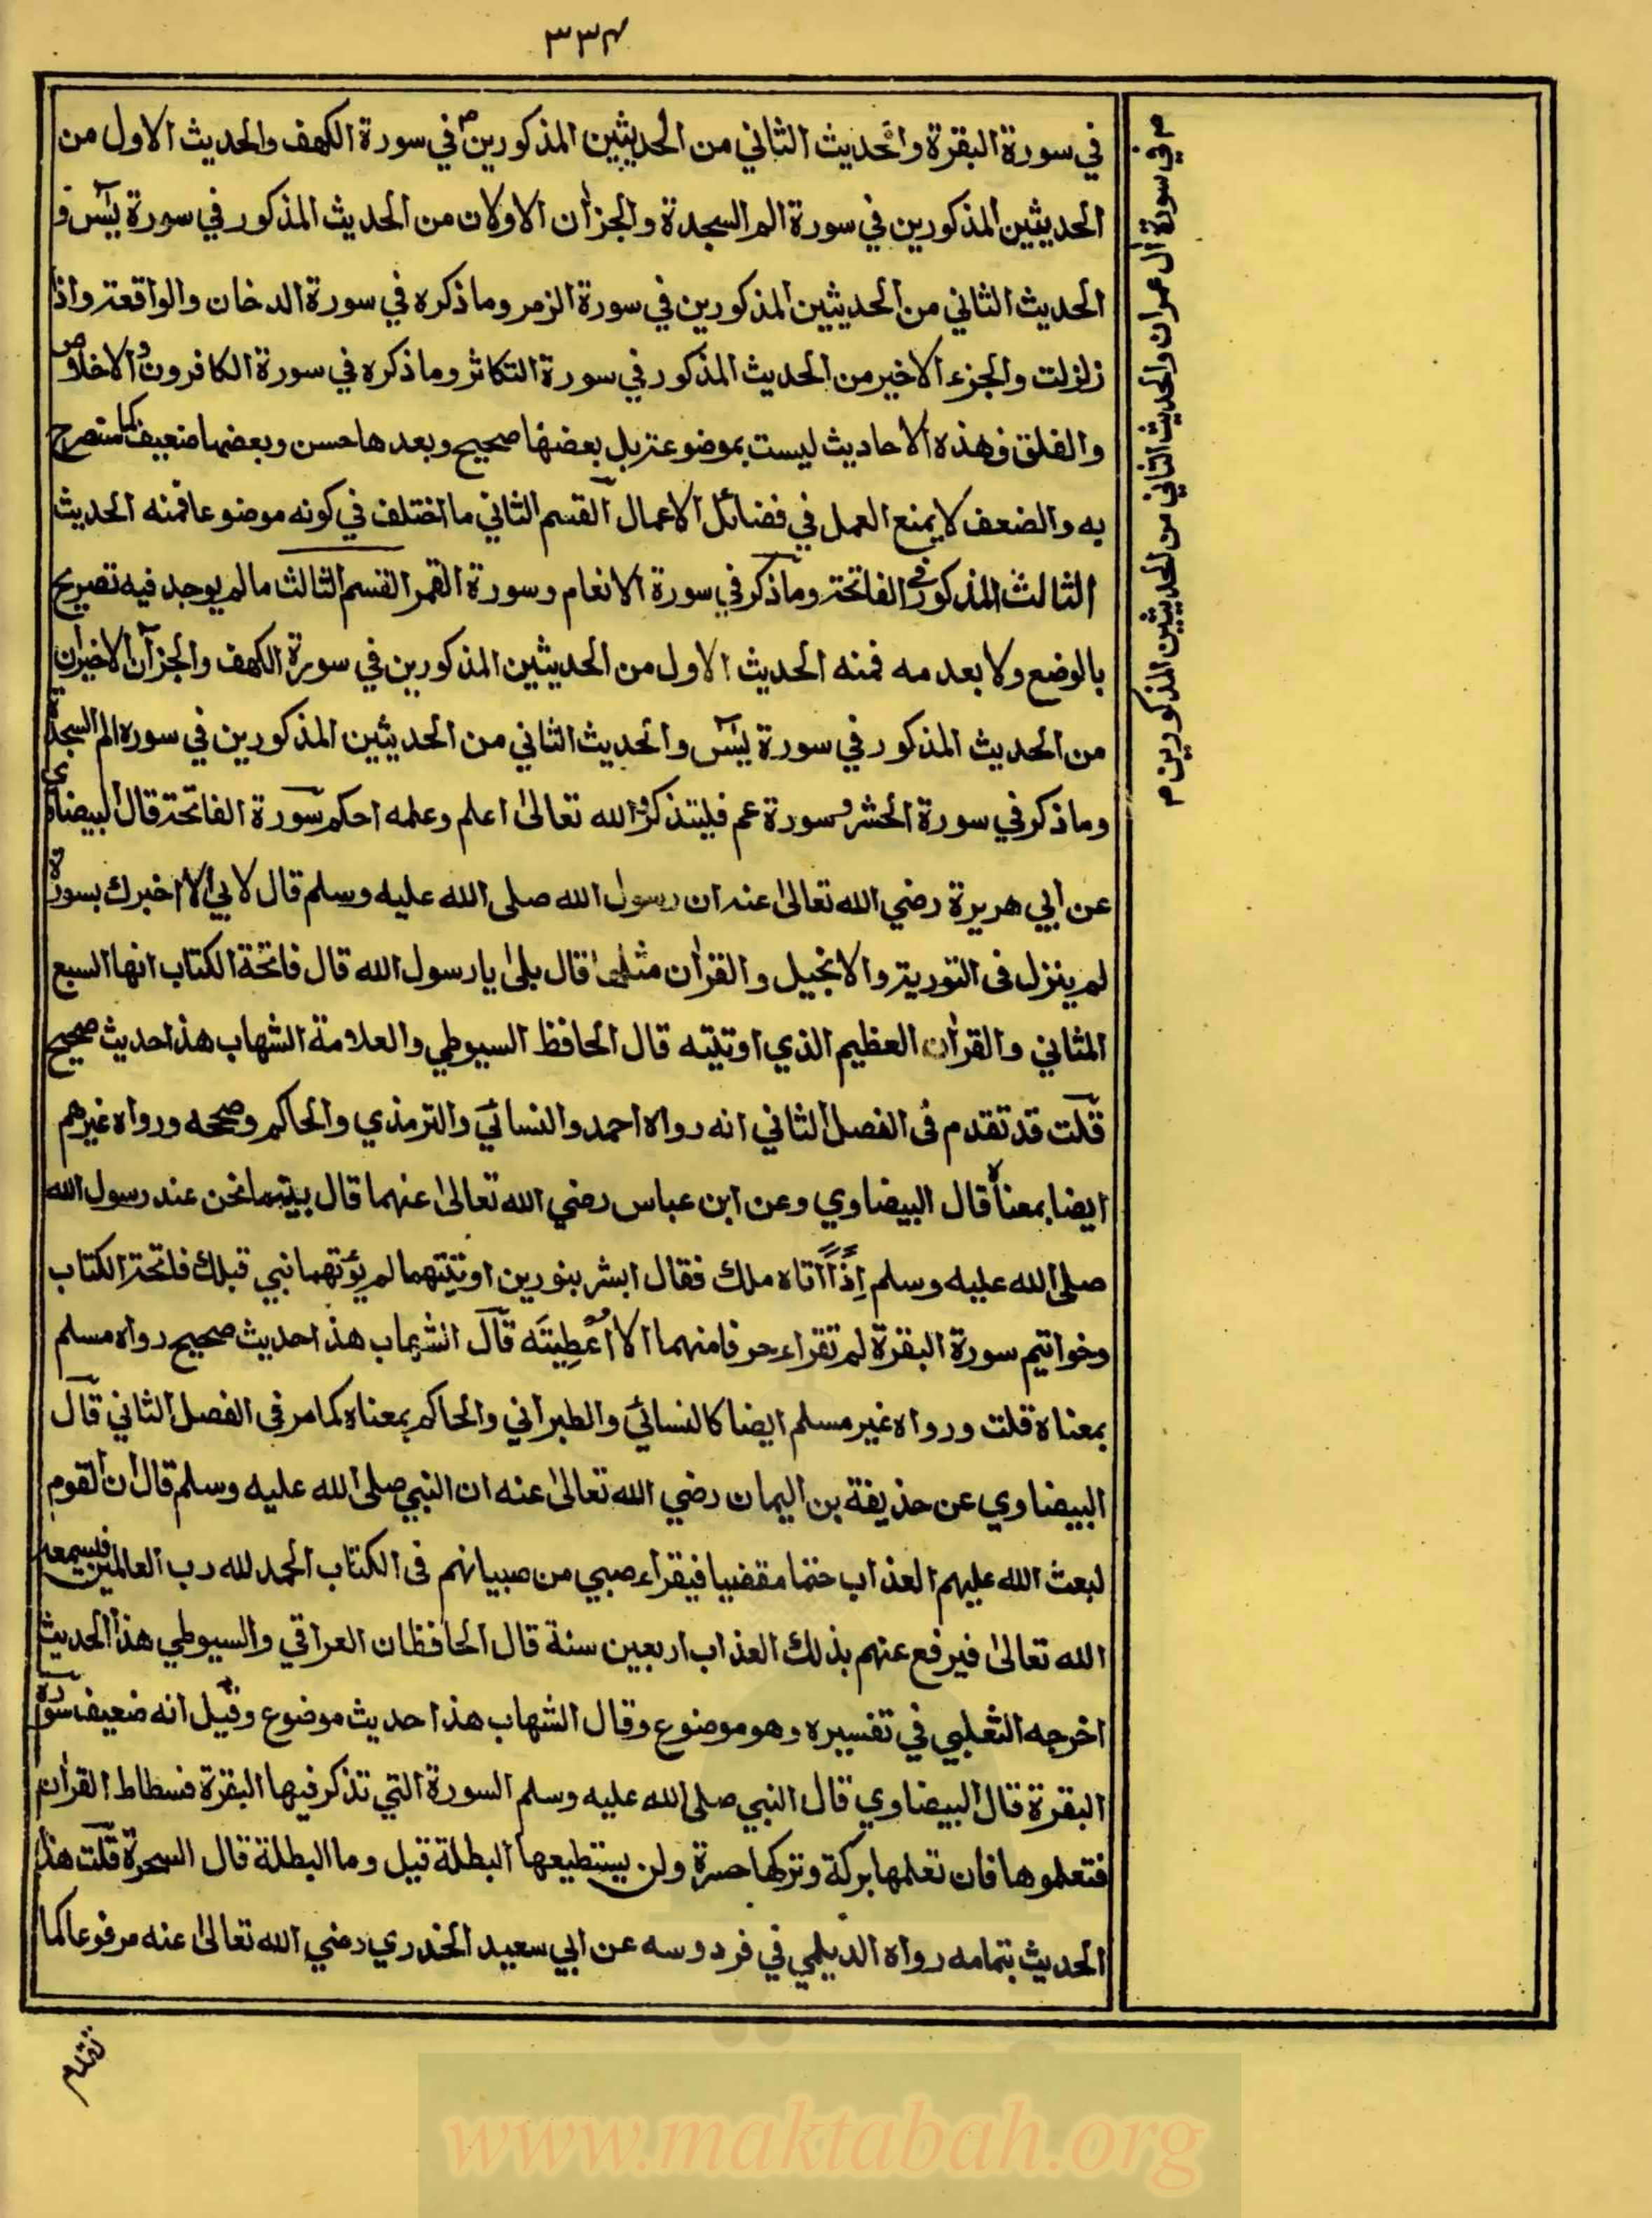 ٣٣٤
في سورة البقرة والحديث الثاني من الحديثين المذكورين في سورة الكهف والحديث الاول من
الحديثين المذكورين في سورة الم السجدة والجزآن الاولان من الحديث المذكور في سورة يسٓ و
الحديث الثاني من الحديثين المذكورين في سورة الزمر وما ذكره في سورة الدخان والواقعة واذا
زلزلت والجزء الاخير من الحديث المذكور في سورة التكاثر وما ذكره في سورة الكافرون والاخلاص
والفلق فهذه الاحاديث ليست بموضوعة بل بعضها صحيح وبعدها حسن وبعضها ضعيف كما ستصرح
به والضعف لا يمنع العمل في فضائل الاعمال القسم الثاني ما اختلف في كونه موضوعا فمنه الحديث
الثالث المذكور في الفاتحة وما ذكر في سورة الانعام وسورة القمر القسم الثالث ما لم يوجد فيه تصريح
بالوضع ولا بعدمه فمنه الحديث الاول من الحديثين المذكورين في سورة الكهف والجزآن الاخيران
من الحديث المذكور في سورة يسٓ والحديث الثاني من الحديثين المذكورين في سورة الم السجدة
وما ذكر في سورة الحشر وسورة عم فليتذكر والله تعالىٰ اعلم وعلمه احكم سورة الفاتحة قال البيضاوي
عن ابي هريرة رضي الله تعالىٰ عنه ان رسول الله صلى الله عليه وسلم قال لابي الا اخبرك بسورة
لم ينزل في التورية والانجيل والقرآن مثلها قال بلىٰ يا رسول الله قال فاتحة الكتاب انها السبع
المثاني والقرآن العظيم الذي اوتيته قال الحافظ السيوطي والعلامة الشهاب هذا حديث صحيح
قلت قد تقدم في الفصل الثاني انه رواه احمد والنسائي والترمذي والحاكم وصححه ورواه غيرهم
ايضا بمعناه قال البيضاوي وعن ابن عباس رضي الله تعالىٰ عنهما قال بينما نحن عند رسول الله
صلى الله عليه وسلم اِذْ اتاه ملك فقال ابشر بنورين اوتيتهما لم يؤتهما نبي قبلك فاتحة الكتاب
وخواتيم سورة البقرة لم تقراء حرفا منهما الا اُعْطِيتَه قال الشهاب هذا حديث صحيح رواه مسلم
بمعناه قلت ورواه غير مسلم ايضا كالنسائي والطبراني والحاكم بمعناه كما مر في الفصل الثاني قال
البيضاوي عن حذيفة بن اليمان رضي الله تعالىٰ عنه ان النبي صلى الله عليه وسلم قال ان القوم
لبعث الله عليهم العذاب حتما مقضيا فيقراء صبي من صبيانهم في الكتاب الحمد لله رب العالمين فيسمعه
الله تعالىٰ فيرفع عنهم بذلك العذاب اربعين سنة قال الحافظان العراقي والسيوطي هذا الحديث
اخرجه الثعلبي في تفسيره وهو موضوع وقال الشهاب هذا حديث موضوع وقيل انه ضعيف سورة
البقرة قال البيضاوي قال النبي صلى الله عليه وسلم السورة التي تذكر فيها البقرة فسطاط القرآن
فتعلموها فان تعلمها بركة وتركها حسرة ولن يستطيعها البطلة قيل وما البطلة قال السحرة قلت هذا
الحديث بتمامه رواه الديلمي في فردوسه عن ابي سعيد الخدري رضي الله تعالىٰ عنه مرفوعا كما
م في سورة آل عمران والحديث الثاني من الحديثين المذكورين م
www.maktabah.org